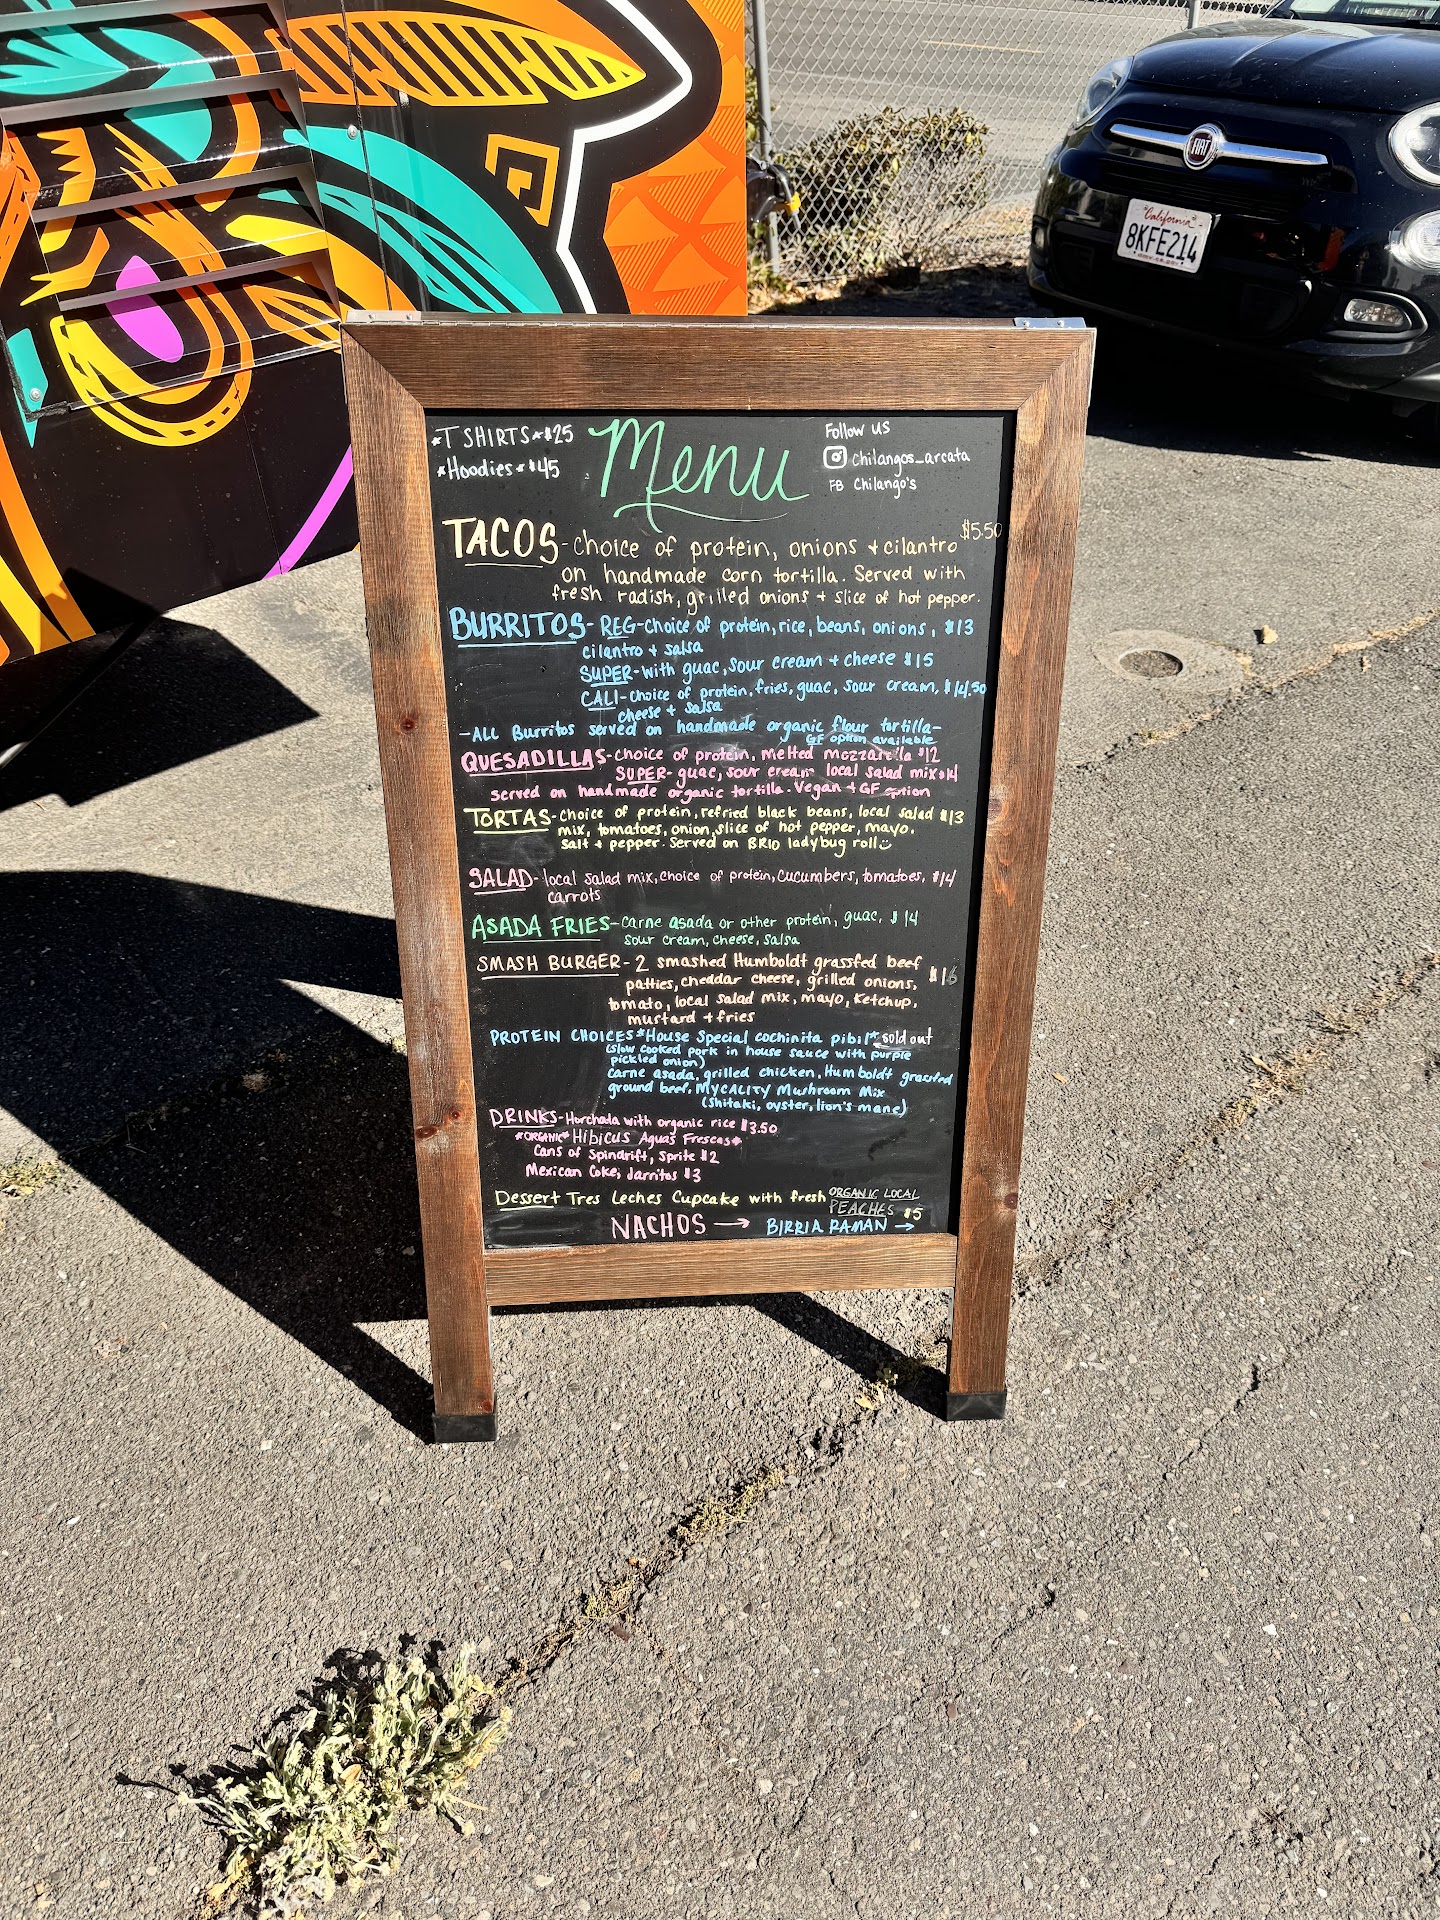 *T SHIRTS* $25
*Hoodies* $45
Menu
Follow us
Chilangos_arcata
FB Chilango's
TACOS - choice of protein, onions + cilantro $5.50
on handmade corn tortilla. Served with
fresh radish, grilled onions + slice of hot pepper.
BURRITOS - REG - choice of protein, rice, beans, onions, $13
cilantro + salsa
SUPER - with guac, sour cream + cheese $15
CALI - choice of protein, fries, guac, sour cream, $14.50
cheese + salsa
-ALL Burritos served on handmade organic flour tortilla-
GF option available
QUESADILLAS - choice of protein, melted mozzarella $12
SUPER - guac, sour cream local salad mix $14
served on handmade organic tortilla. Vegan + GF option
TORTAS - choice of protein, refried black beans, local salad $13
mix, tomatoes, onion, slice of hot pepper, mayo.
salt + pepper. Served on BRIO ladybug roll
SALAD - local salad mix, choice of protein, cucumbers, tomatoes, $14
carrots
ASADA FRIES - carne asada or other protein, guac, $14
sour cream, cheese, salsa
SMASH BURGER - 2 smashed Humboldt grassfed beef
patties, cheddar cheese, grilled onions, $16
tomato, local salad mix, mayo, ketchup,
mustard + fries
PROTEIN CHOICES *House Special cochinita pibil* sold out
(slow cooked pork in house sauce with purple
pickled onion)
carne asada, grilled chicken, Humboldt grassfed
ground beef, MYCALITY Mushroom Mix
(shitaki, oyster, lion's mane)
DRINKS - Horchata with organic rice $3.50
*ORGANIC* Hibicus Aguas Frescas*
Cans of Spindrift, Sprite $2
Mexican Coke, Jarritos $3
Dessert Tres Leches Cupcake with fresh ORGANIC LOCAL
PEACHES $5
NACHOS → BIRRIA RAMAN →
FIAT
California
8KFE214